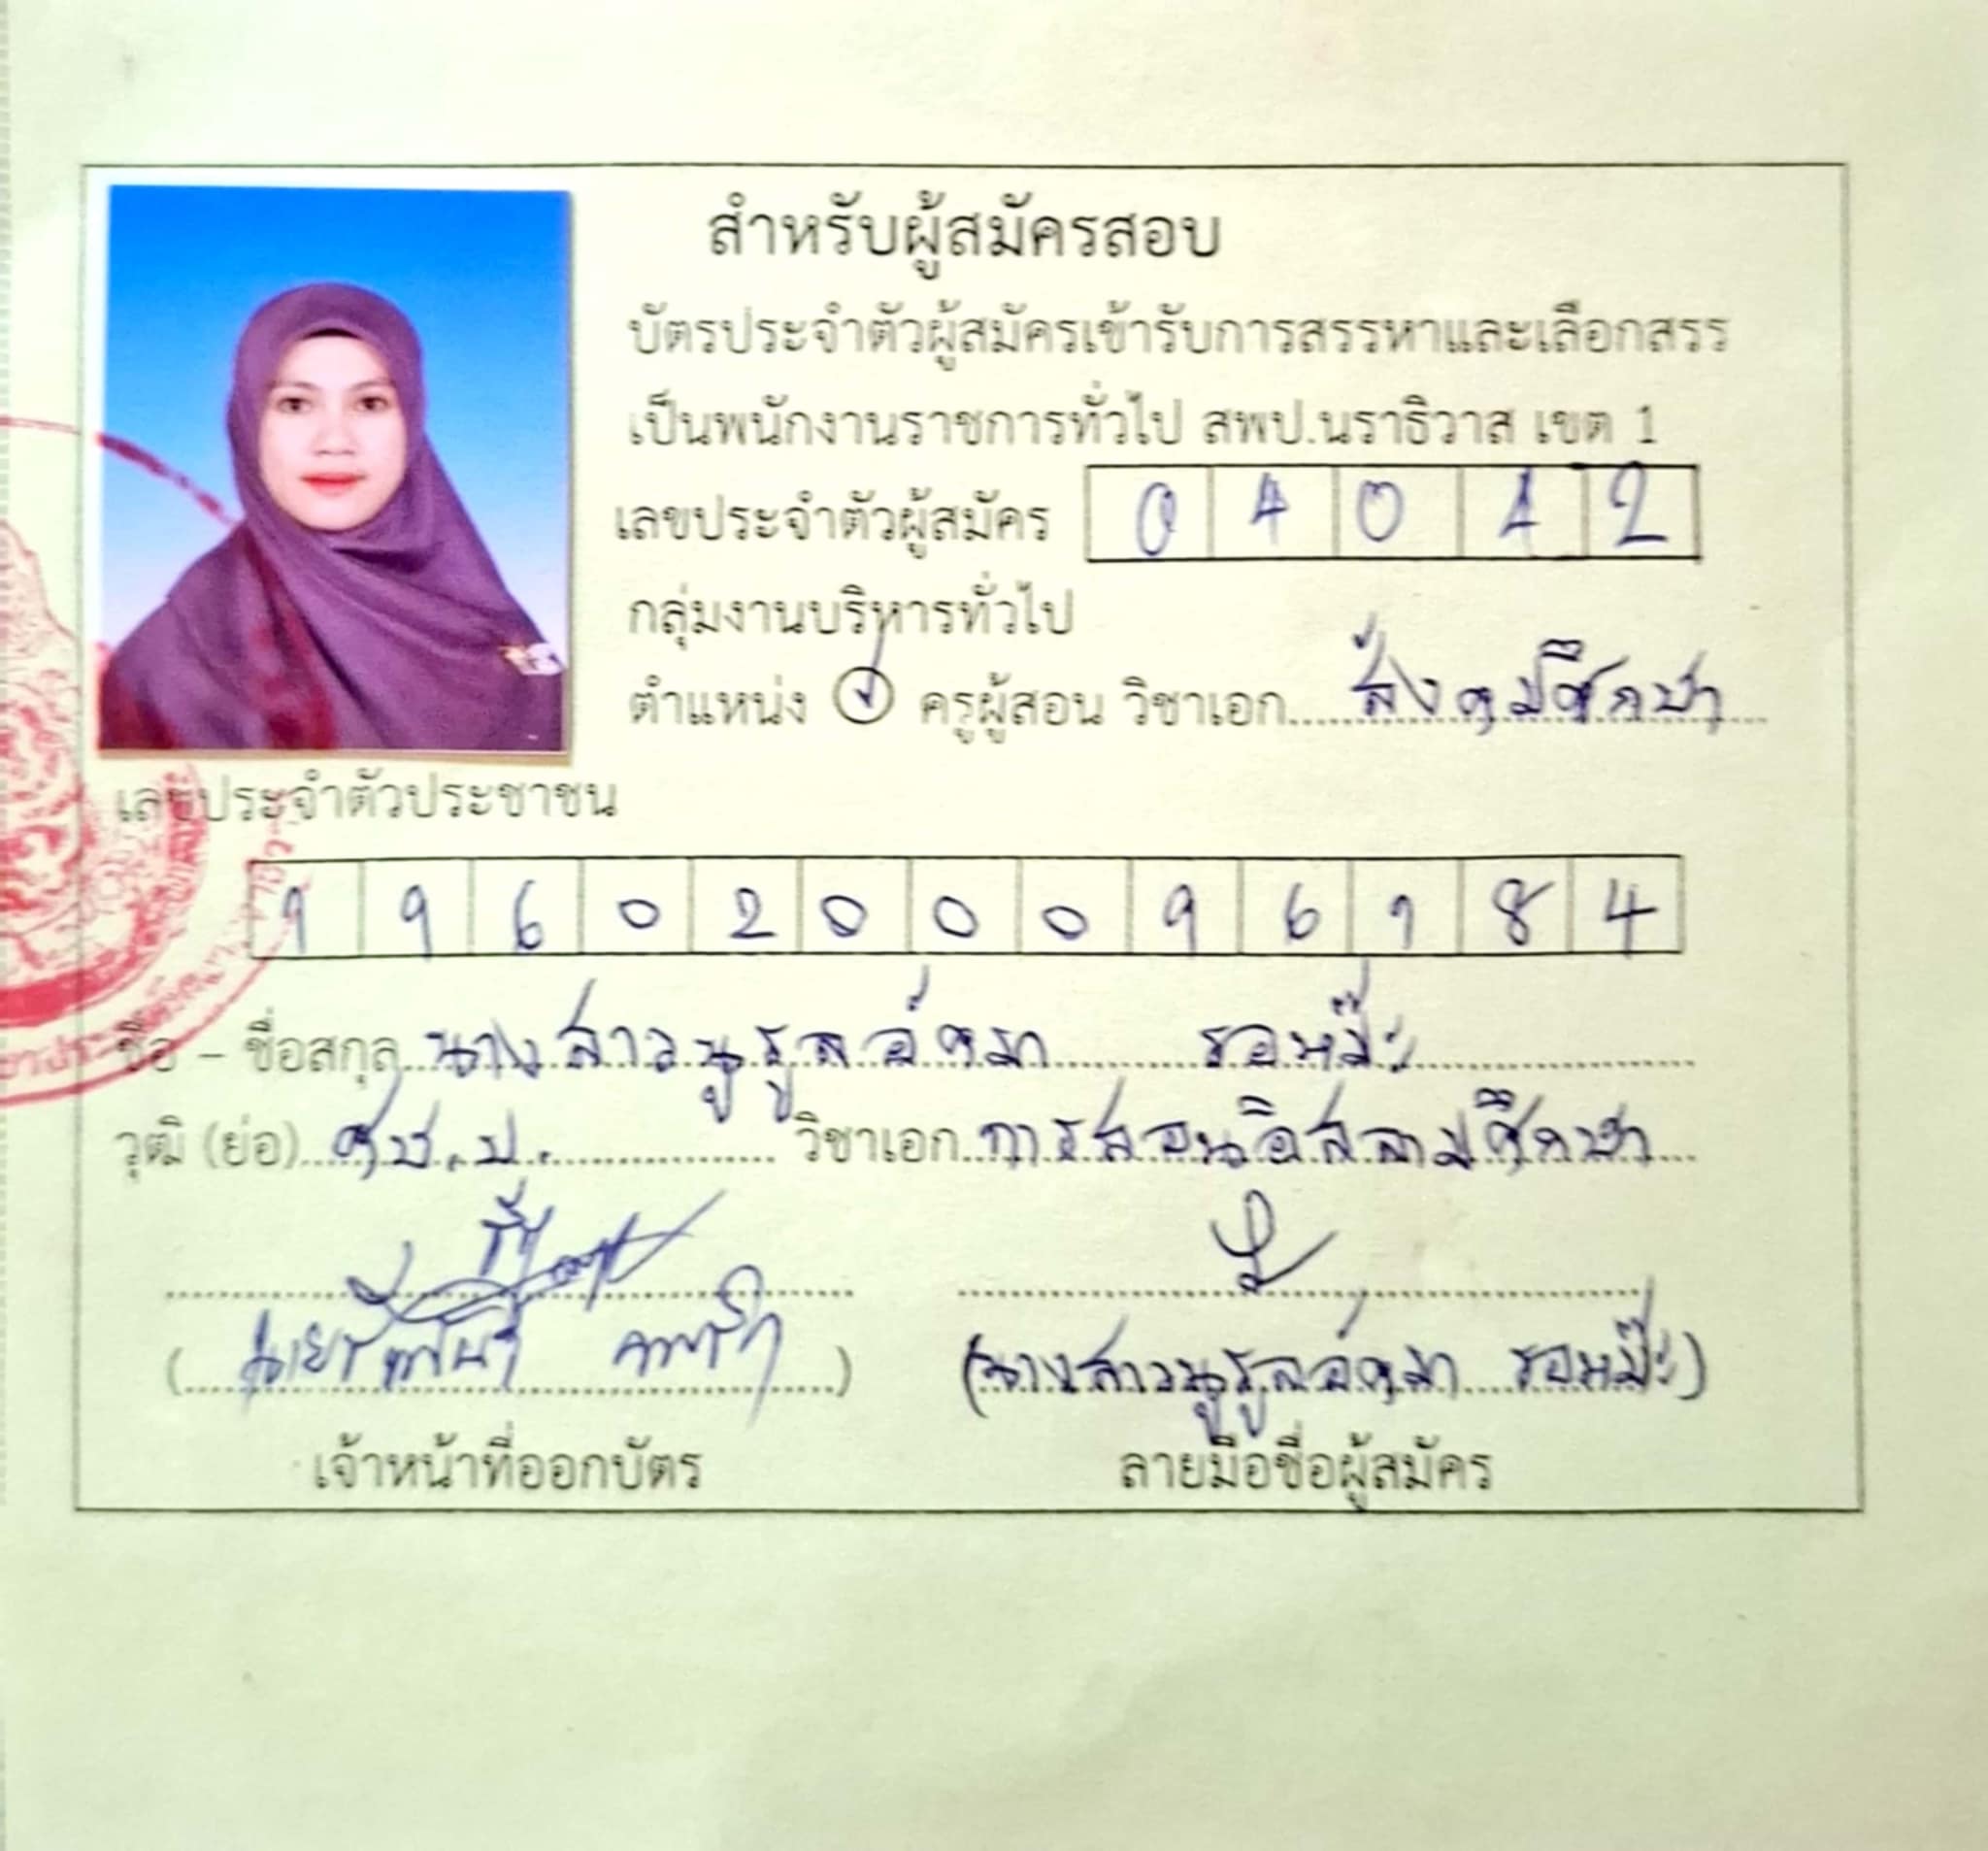 สำหรับผู้สมัครสอบ
บัตรประจำตัวผู้สมัครเข้ารับการสรรหาและเลือกสรร
เป็นพนักงานราชการทั่วไป สพป.นราธิวาส เขต 1
เลขประจำตัวผู้สมัคร 0 4 0 1 2
กลุ่มงานบริหารทั่วไป
ตำแหน่ง ครูผู้สอน วิชาเอก สังคมศึกษา
เลขประจำตัวประชาชน
1 9 6 0 2 0 0 0 9 6 1 8 4
ชื่อ – ชื่อสกุล นางสาวนูรูลอัคมา รอหม๊ะ
วุฒิ (ย่อ) ศษ.บ. วิชาเอก การสอนอิสลามศึกษา
(นางสาวนูรูลอัคมา รอหม๊ะ)
เจ้าหน้าที่ออกบัตร ลายมือชื่อผู้สมัคร